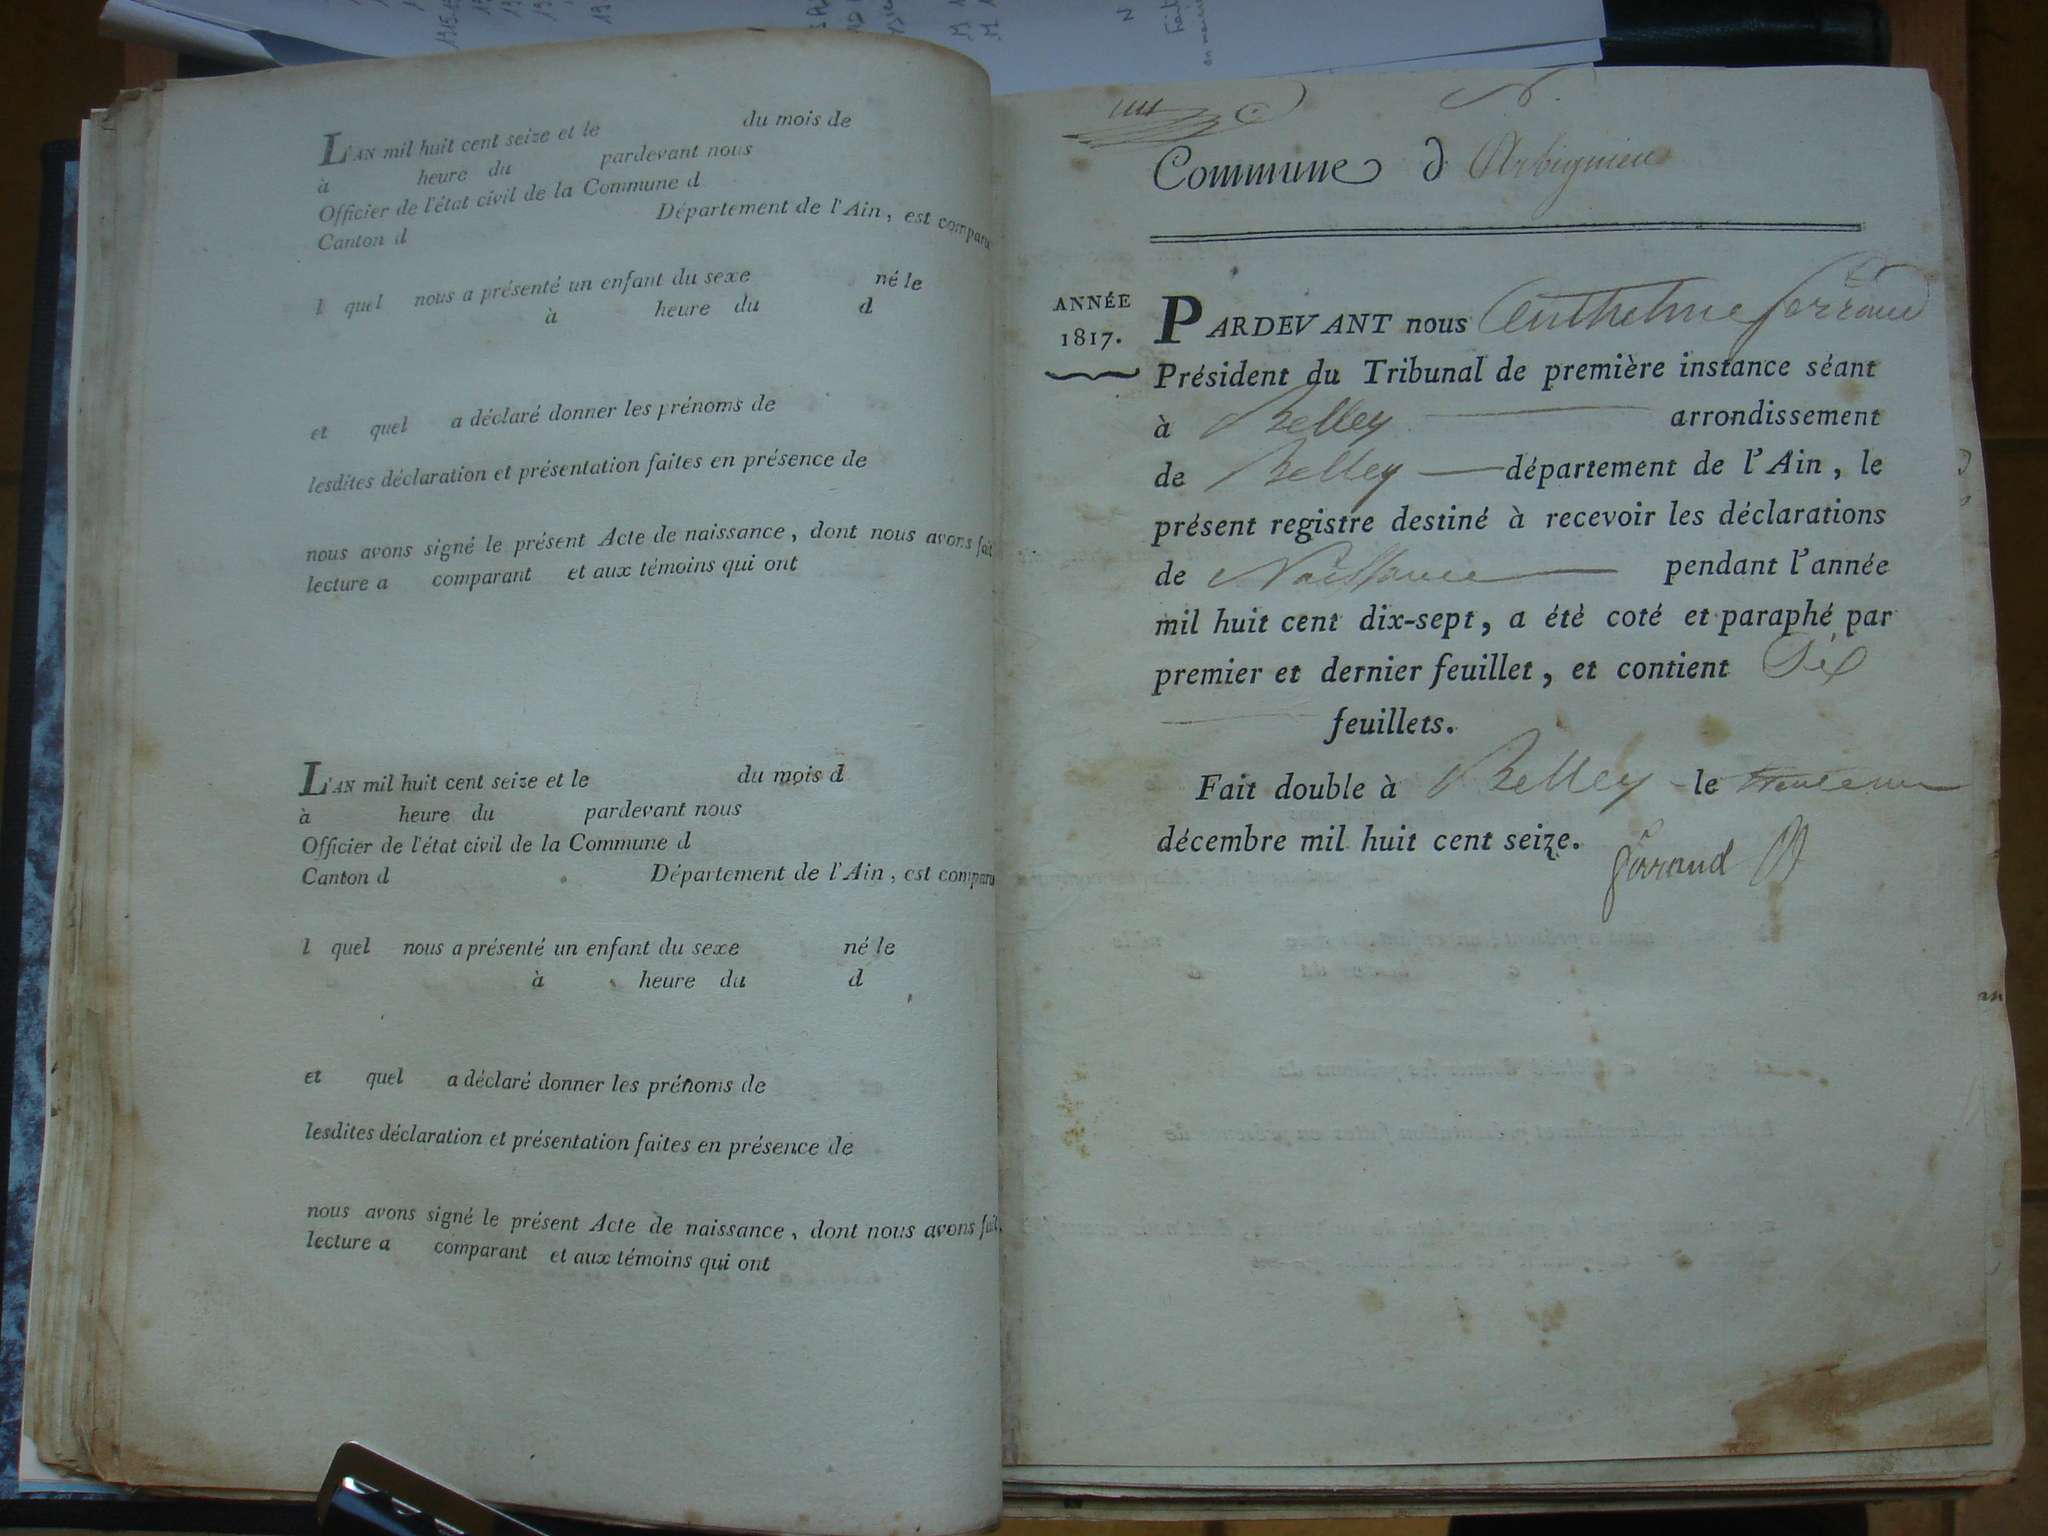 L'AN mil huit cent seize et le du mois de
à heure du pardevant nous
Officier de l'état civil de la Commune d
Canton d Département de l'Ain, est comparu
l quel nous a présenté un enfant du sexe né le
à heure du d
et quel a déclaré donner les prénoms de
lesdites déclaration et présentation faites en présence de
nous avons signé le présent Acte de naissance, dont nous avons fait
lecture a comparant et aux témoins qui ont
L'AN mil huit cent seize et le du mois d
à heure du pardevant nous
Officier de l'état civil de la Commune d
Canton d Département de l'Ain, est comparu
l quel nous a présenté un enfant du sexe né le
à heure du d
et quel a déclaré donner les prénoms de
lesdites déclaration et présentation faites en présence de
nous avons signé le présent Acte de naissance, dont nous avons fait
lecture a comparant et aux témoins qui ont
Commune d Arbignieu
ANNÉE
1817.
PARDEVANT nous Anthelme
Président du Tribunal de première instance séant
à Belley arrondissement
de Belley département de l'Ain, le
présent registre destiné à recevoir les déclarations
de Naissance pendant l'année
mil huit cent dix-sept, a été coté et paraphé par
premier et dernier feuillet, et contient Six
feuillets.
Fait double à Belley le
décembre mil huit cent seize.